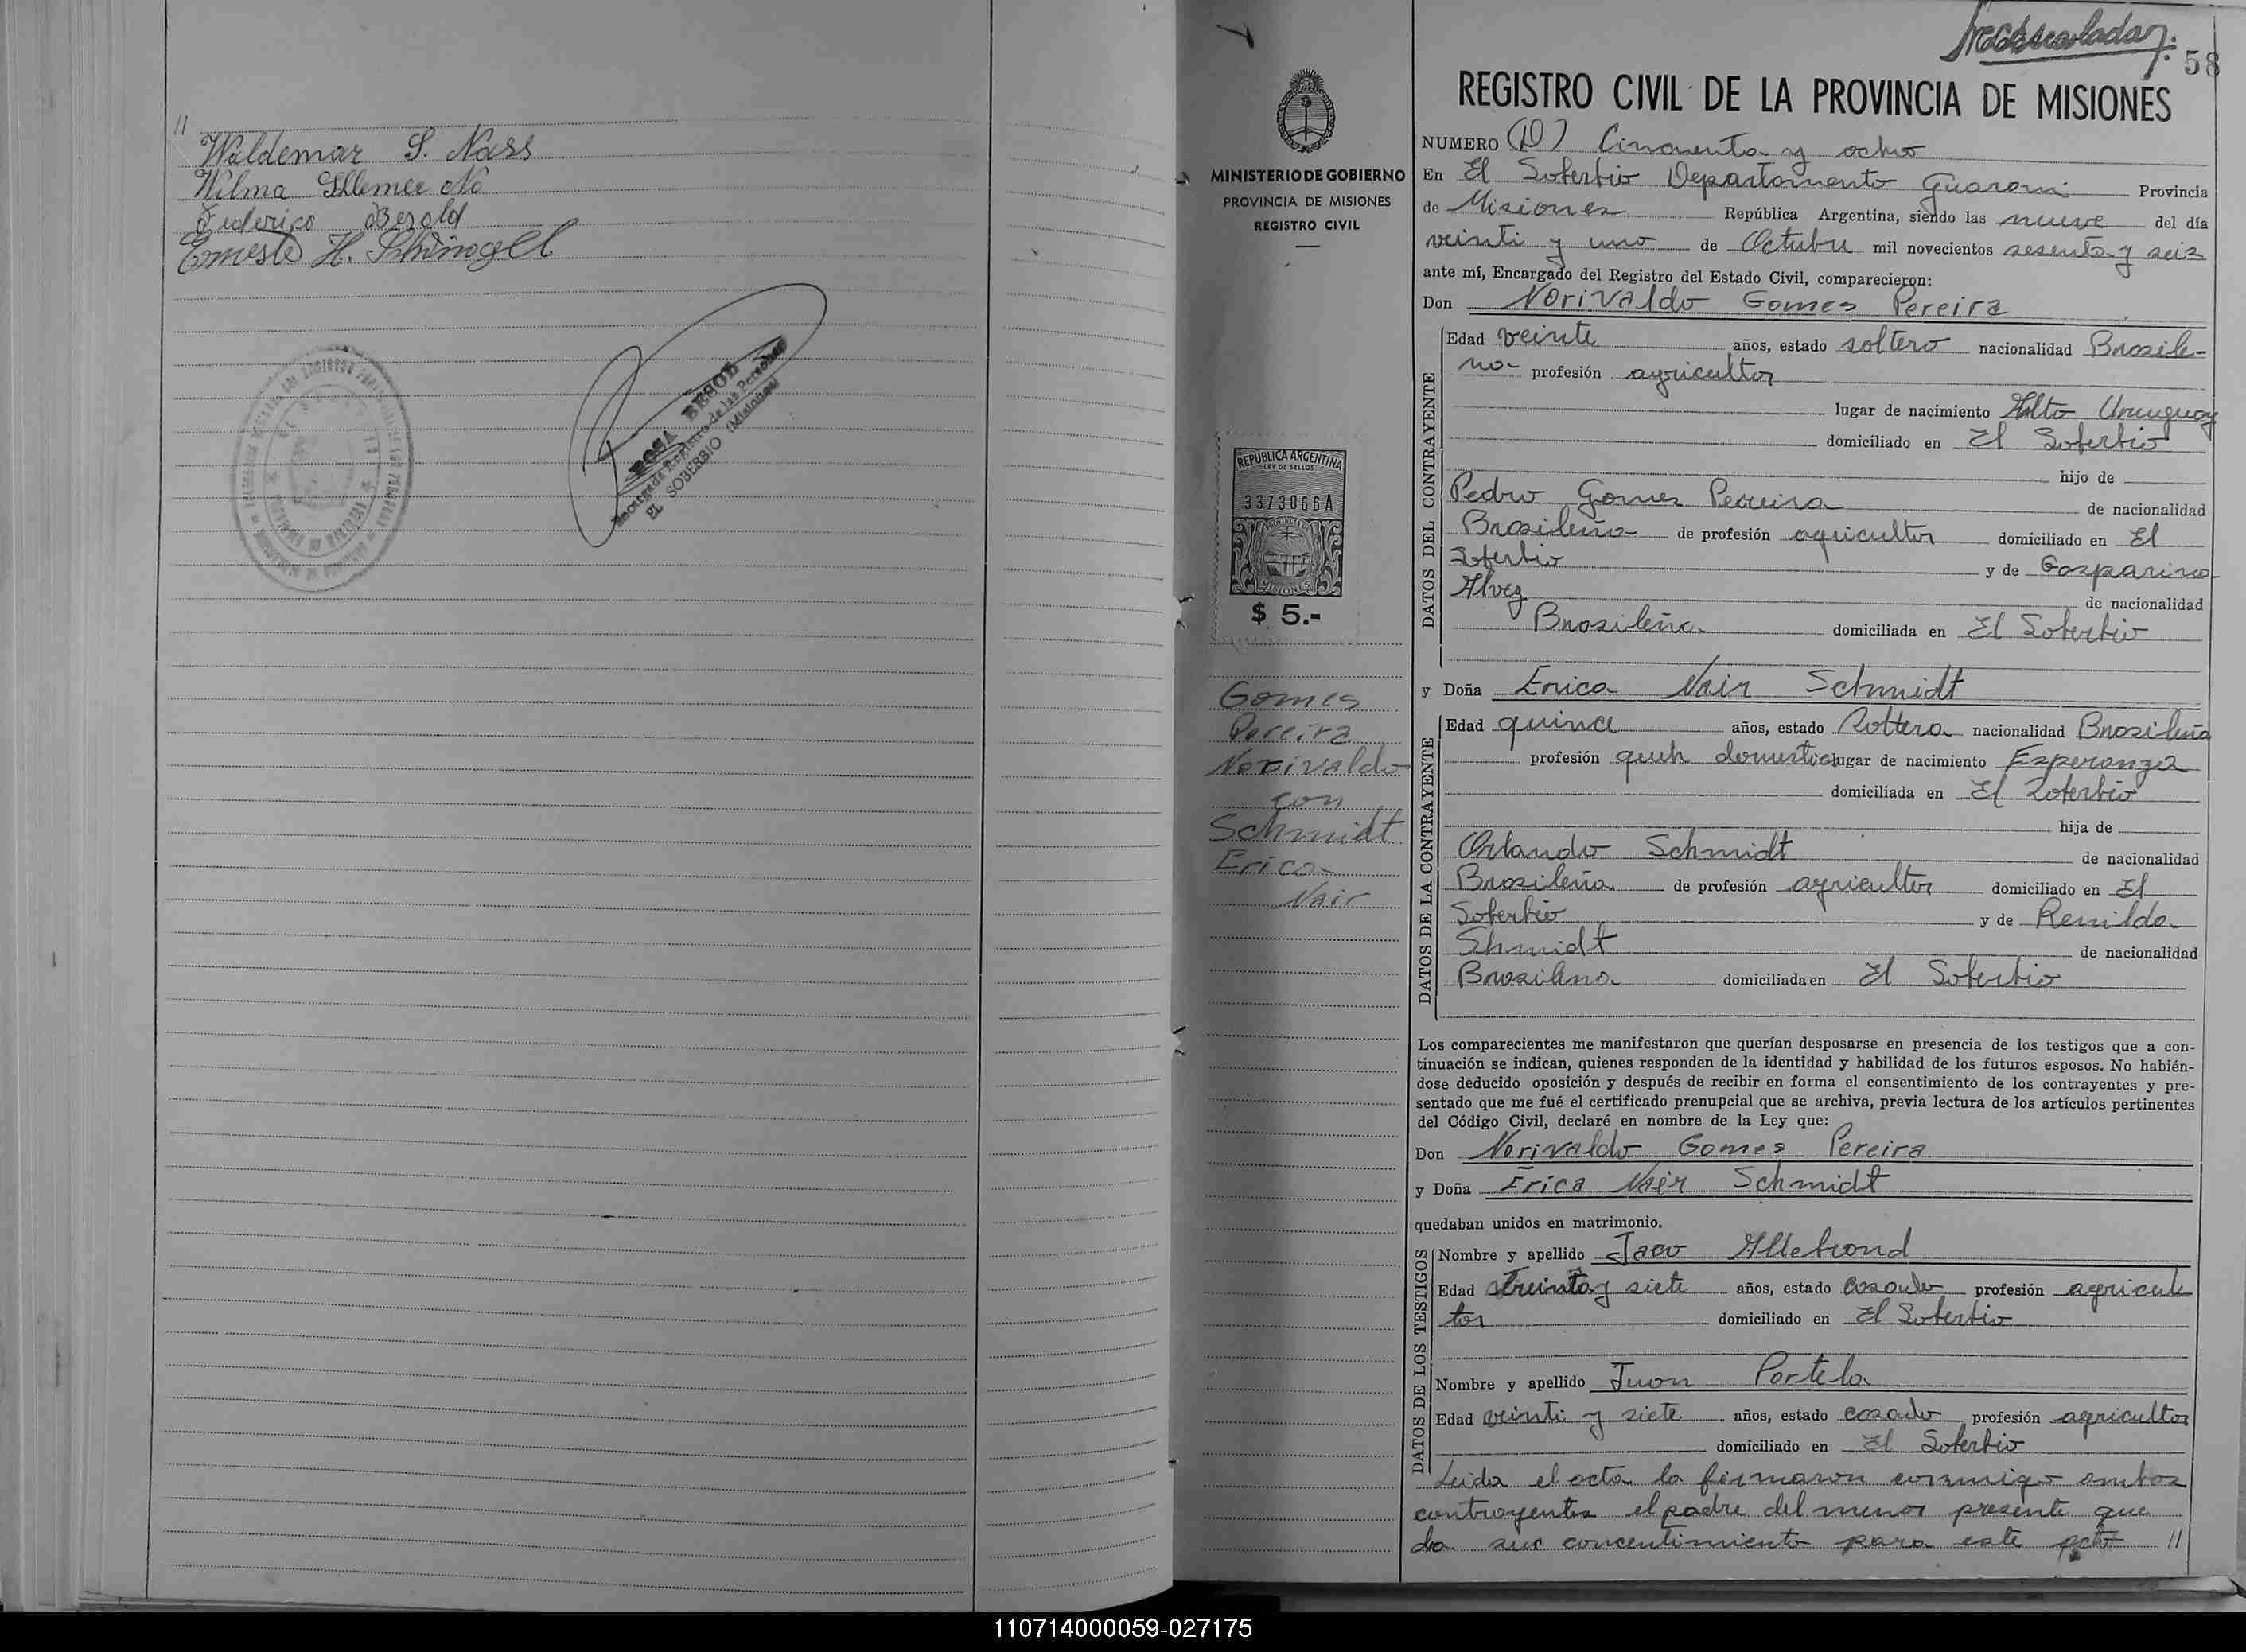 //
Waldemar S. Nass
Wilma
Federico Bezold
Ernesto H. Schwingel
ROSA BESOE
Encargada Registro de las Personas
EL SOBERBIO (Misiones)
58
MINISTERIO DE GOBIERNO
PROVINCIA DE MISIONES
REGISTRO CIVIL
REPUBLICA ARGENTINA
LEY DE SELLOS
3373066A
MISIONES
$ 5.-
Gomes
Pereira
Norivaldo
con
Schmidt
Erica
Nair
REGISTRO CIVIL DE LA PROVINCIA DE MISIONES
NUMERO (D) Cincuenta y ocho
En El Soberbio Departamento Guarani Provincia
de Misiones República Argentina, siendo las nueve del día
veinti y uno de Octubre mil novecientos sesenta y seis
ante mí, Encargado del Registro del Estado Civil, comparecieron:
Don Norivaldo Gomes Pereira
DATOS DEL CONTRAYENTE
Edad veinte años, estado soltero nacionalidad Brasile-
no- profesión agricultor
lugar de nacimiento Alto Uruguay
domiciliado en El Soberbio
hijo de
Pedro Gomes Pereira de nacionalidad
Brasileña de profesión agricultor domiciliado en El
Soberbio y de Gasparina
Alvez de nacionalidad
Brasileña domiciliada en El Soberbio
y Doña Erica Nair Schmidt
DATOS DE LA CONTRAYENTE
Edad quince años, estado Soltera nacionalidad Brasileña
profesión queh domestico lugar de nacimiento Esperanza
domiciliada en El Soberbio
hija de
Orlando Schmidt de nacionalidad
Brasileña de profesión agricultor domiciliado en El
Soberbio y de Renilda
Shmidt de nacionalidad
Brasilena domiciliada en El Soberbio
Los comparecientes me manifestaron que querían desposarse en presencia de los testigos que a con-
tinuación se indican, quienes responden de la identidad y habilidad de los futuros esposos. No habién-
dose deducido oposición y después de recibir en forma el consentimiento de los contrayentes y pre-
sentado que me fué el certificado prenupcial que se archiva, previa lectura de los artículos pertinentes
del Código Civil, declaré en nombre de la Ley que:
Don Norivaldo Gomes Pereira
y Doña Erica Nair Schmidt
quedaban unidos en matrimonio.
DATOS DE LOS TESTIGOS
Nombre y apellido Jaco Allebrond
Edad treinta y siete años, estado casado profesión agricul
tor domiciliado en El Soberbio
Nombre y apellido Juan Portela
Edad veinti y siete años, estado casado profesión agricultor
domiciliado en El Soberbio
Leida el acta la firmaron conmigo ambos
contrayentes el padre del menor presente que
da sur concentimiento para este acto //
110714000059-027175